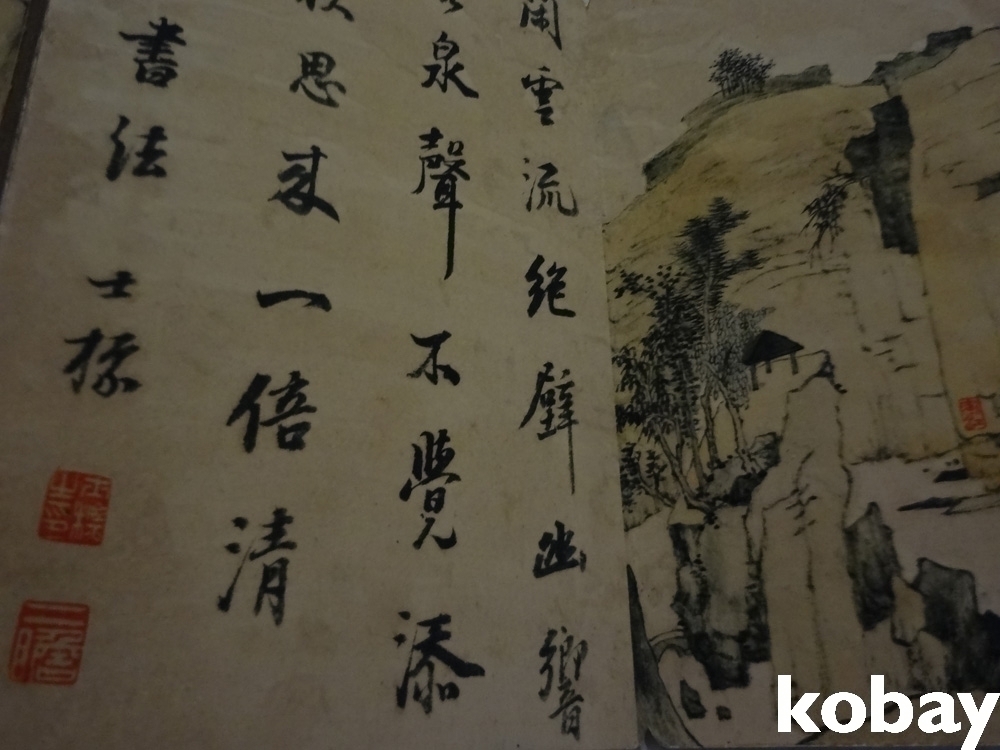 閑雲流絶壁幽響
泉聲不覺添
思來一倍清
書法
士標
kobay